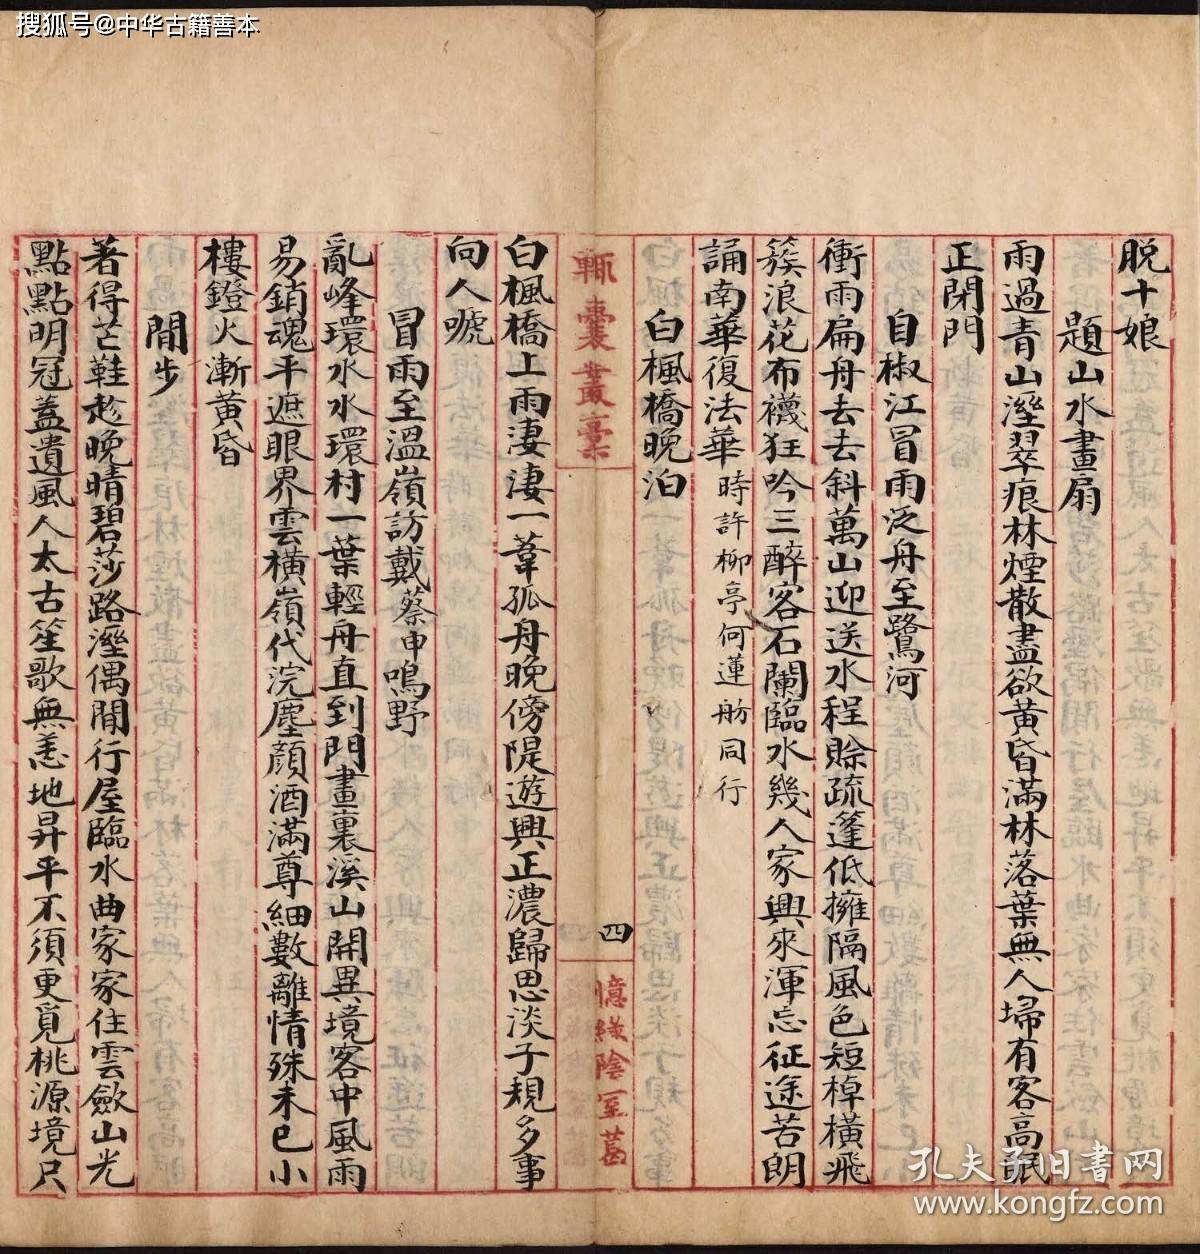 搜狐号@中华古籍善本
脱十娘
題山水畫扇
雨過青山溼翠痕林煙散盡欲黃昏滿林落葉無人埽有客高眠
正閉門
自椒江冒雨泛舟至鷺河
衝雨扁舟去去斜萬山迎送水程賒疏篷低擁隔風色短棹橫飛
簇浪花布襪狂吟三醉客石闌臨水幾人家興來渾忘征途苦朗
誦南華復法華時許柳亭何蓮舫同行
白楓橋晚泊
輞囊叢稾
四
憶綠陰室
白楓橋上雨淒淒一葦孤舟晚傍隄遊興正濃歸思淡子規多事
向人嗁
冒雨至溫嶺訪戴蔡申鳴野
亂峰環水水環村一葉輕舟直到門畫裏溪山開異境客中風雨
易銷魂平遮眼界雲橫嶺代浣塵顏酒滿尊細數離情殊未已小
樓鐙火漸黃昏
閒步
著得芒鞋趁晚晴碧莎路溼偶閒行屋臨水曲家家住雲斂山光
點點明冠蓋遺風人太古笙歌無恙地昇平不須更覓桃源境只
孔夫子旧书网
www.kongfz.com